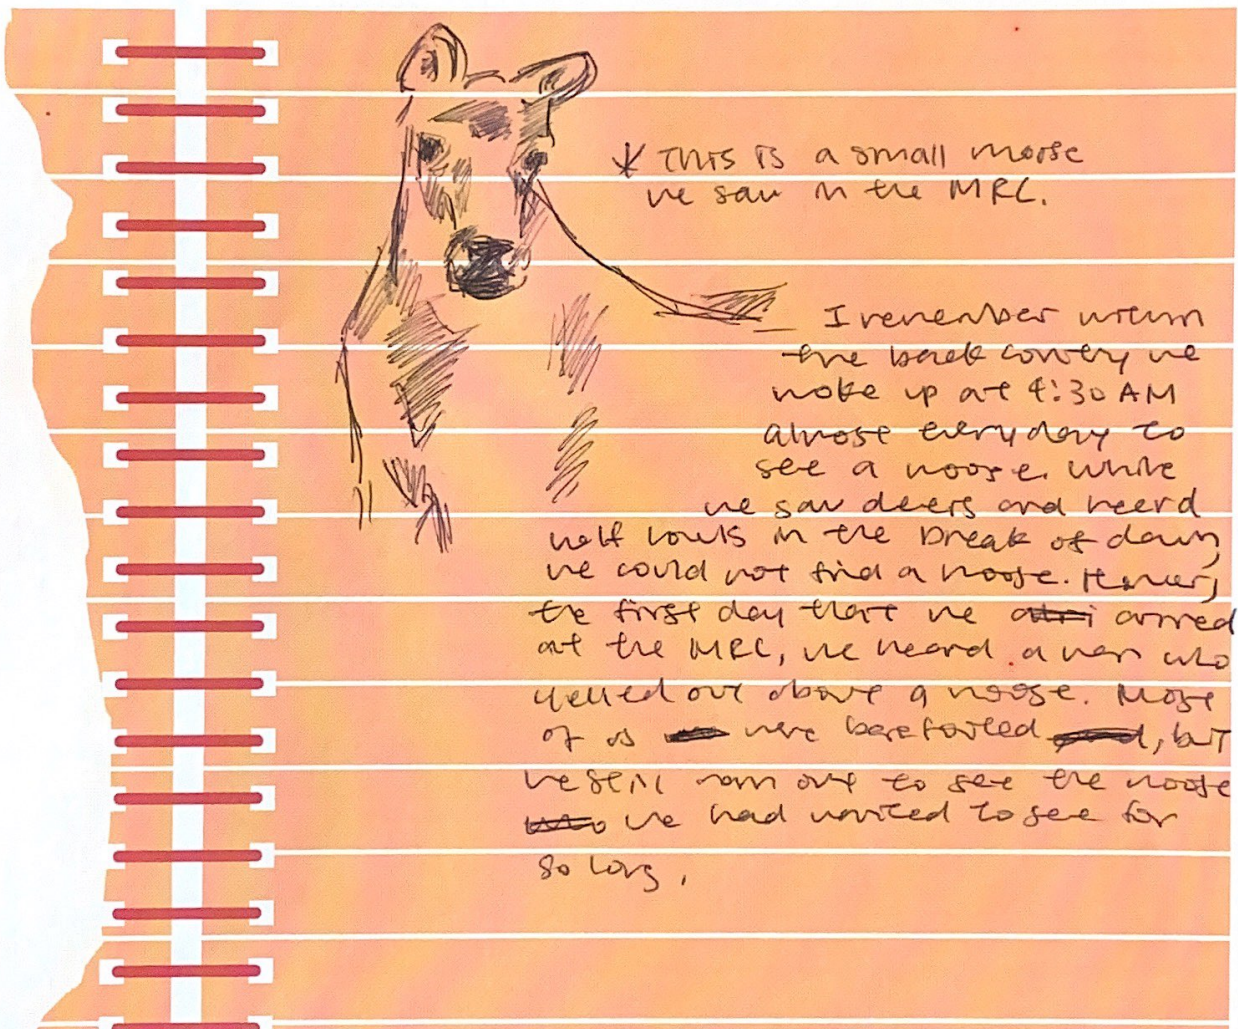 * This is a small moose
we saw in the MRC.
I remember when in
the back country we
woke up at 4:30 AM
almost everyday to
see a moose. While
we saw deers and heard
wolf howls in the break of dawn,
we could not find a moose. However,
the first day that we arrived
at the MRC, we heard a man who
yelled out above a moose. Most
of us were barefooted, but
we still ran out to see the moose
we had wanted to see for
so long.